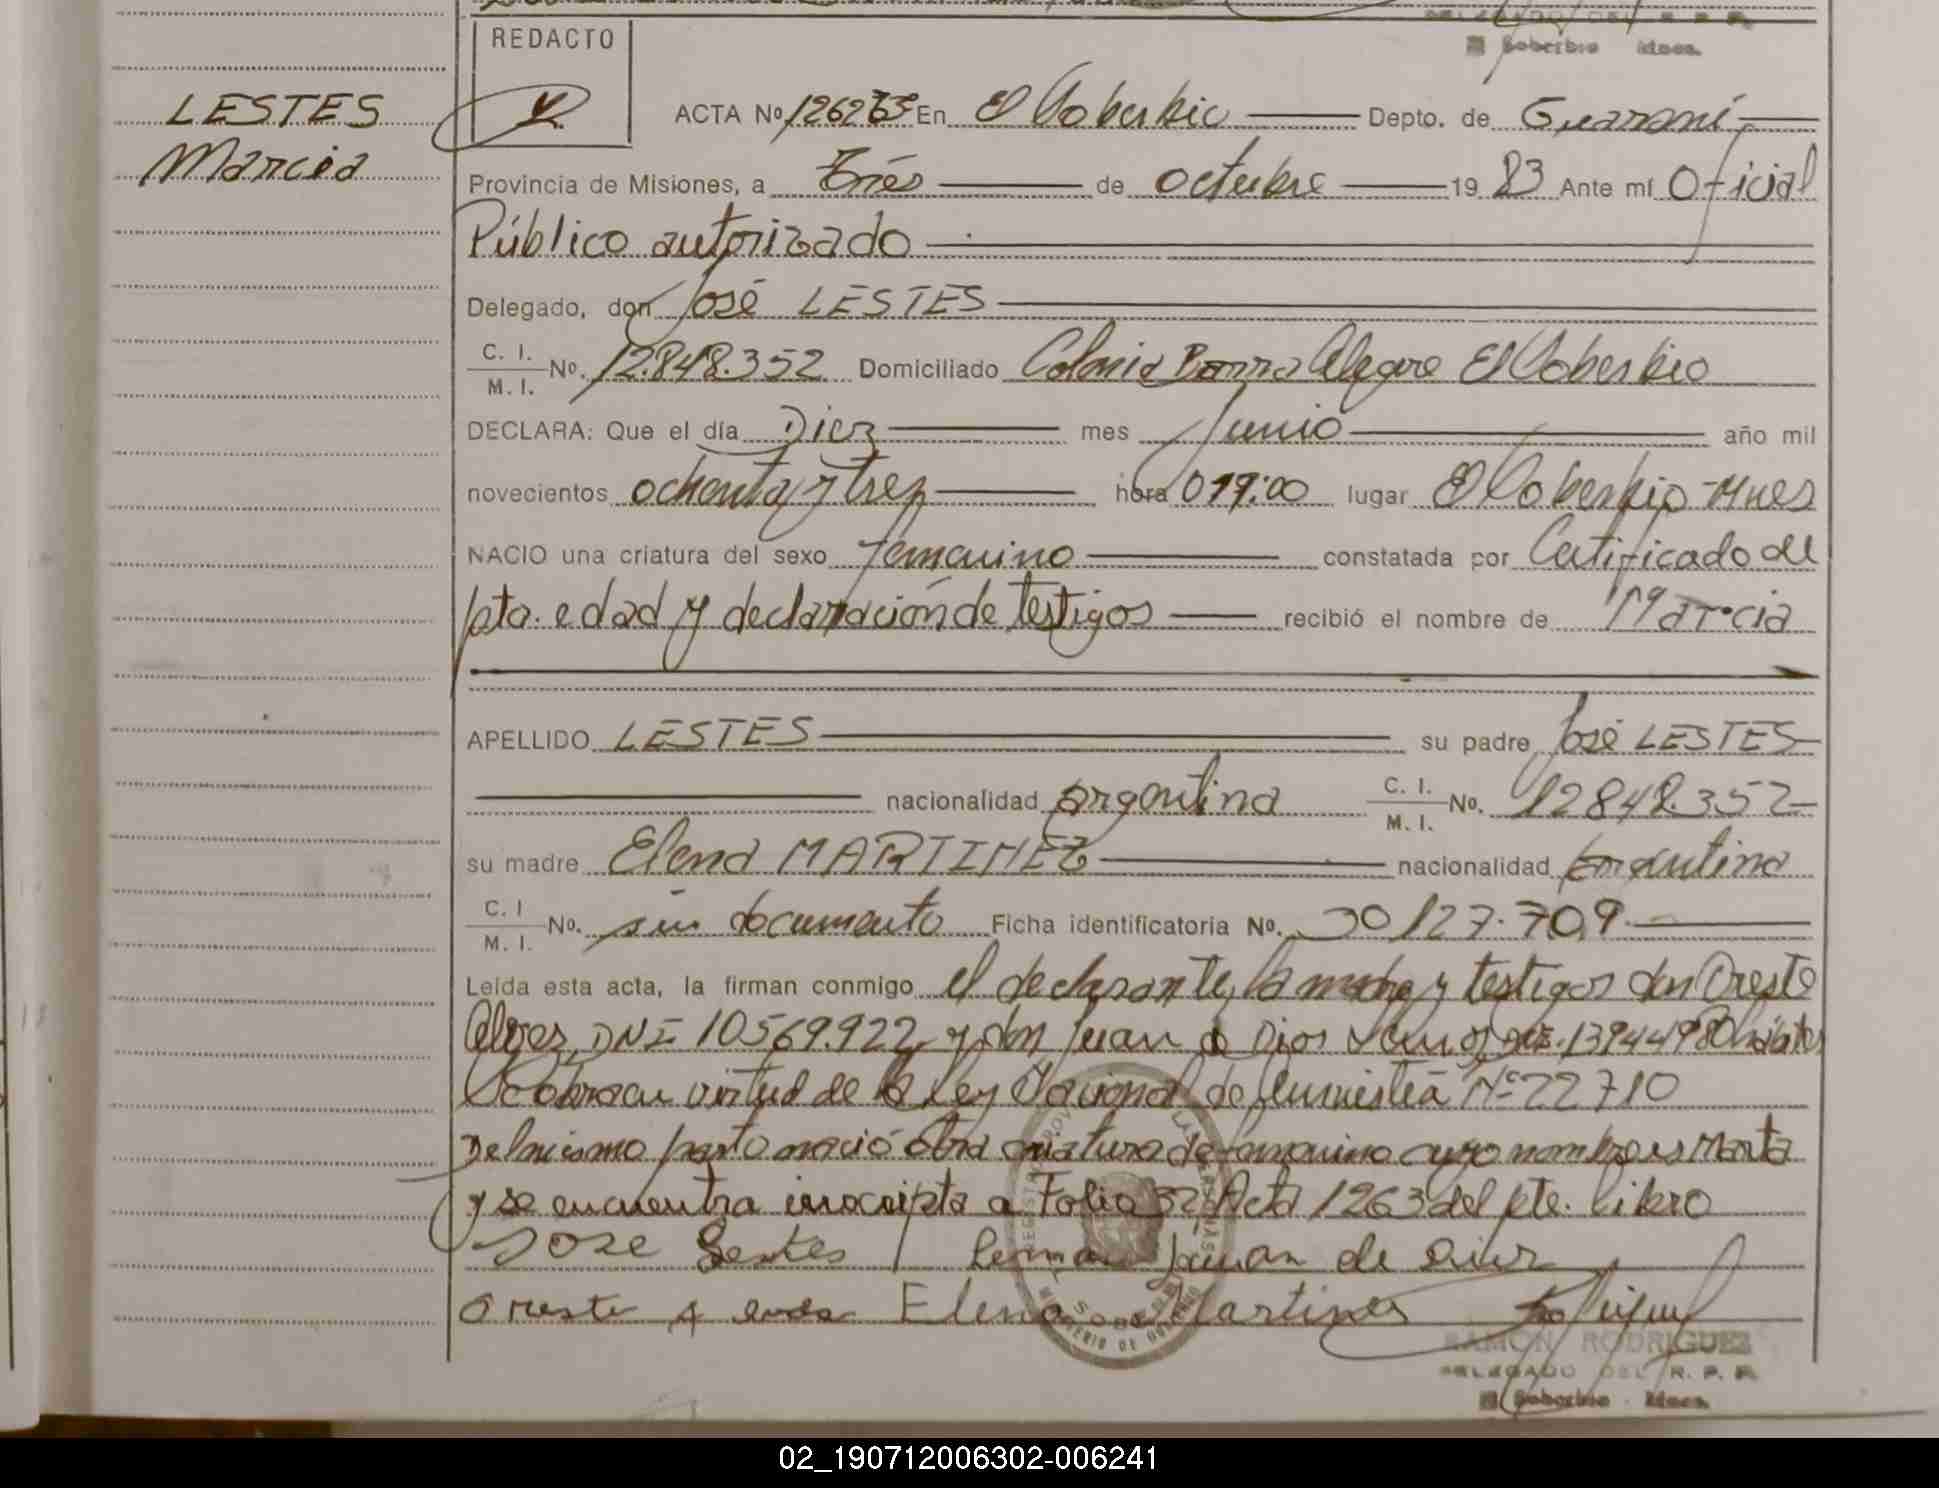 DELEGADO DEL R. P. P.
El Soberbio Mnes.
REDACTO
LESTES
Marcia
ACTA Nº En El Soberbio Depto. de Guaraní
Provincia de Misiones, a Trés de octubre 19 83 Ante mí Oficial
Público autorizado
Delegado, don José LESTES
C. I. / M. I. No. 12.848.352 Domiciliado Colonia Barra Alegre El Soberbio
DECLARA: Que el día Diez mes Junio año mil
novecientos ochenta y trez hora lugar El Soberbio-Mnes
NACIO una criatura del sexo femenino constatada por Certificado de
pta. edad y declaración de testigos recibió el nombre de Marcia
APELLIDO LESTES su padre José LESTES
nacionalidad argentina C. I. / M. I. No. 12848.352
su madre Elena MARTINEZ nacionalidad argentina
C. I / M. I. No. sin documento Ficha identificatoria No. 30127.709
Leída esta acta, la firman conmigo el declarante, la madre y testigos don Oreste
Alvez, DNI 10569.922, y don Juan de Dios
virtud de la Ley Nacional de Amnistia Nº 22710
Del mismo parto nació otra criatura de femenino cuyo nombre es Marta
y se encuentra inscripta a Folio 32 Acta 1263 del pte. libro
Jose Lestes Juan de
Oreste Elena Martinez
RAMON RODRIGUEZ
DELEGADO DEL R. P. P.
El Soberbio - Mnes.
02_190712006302-006241